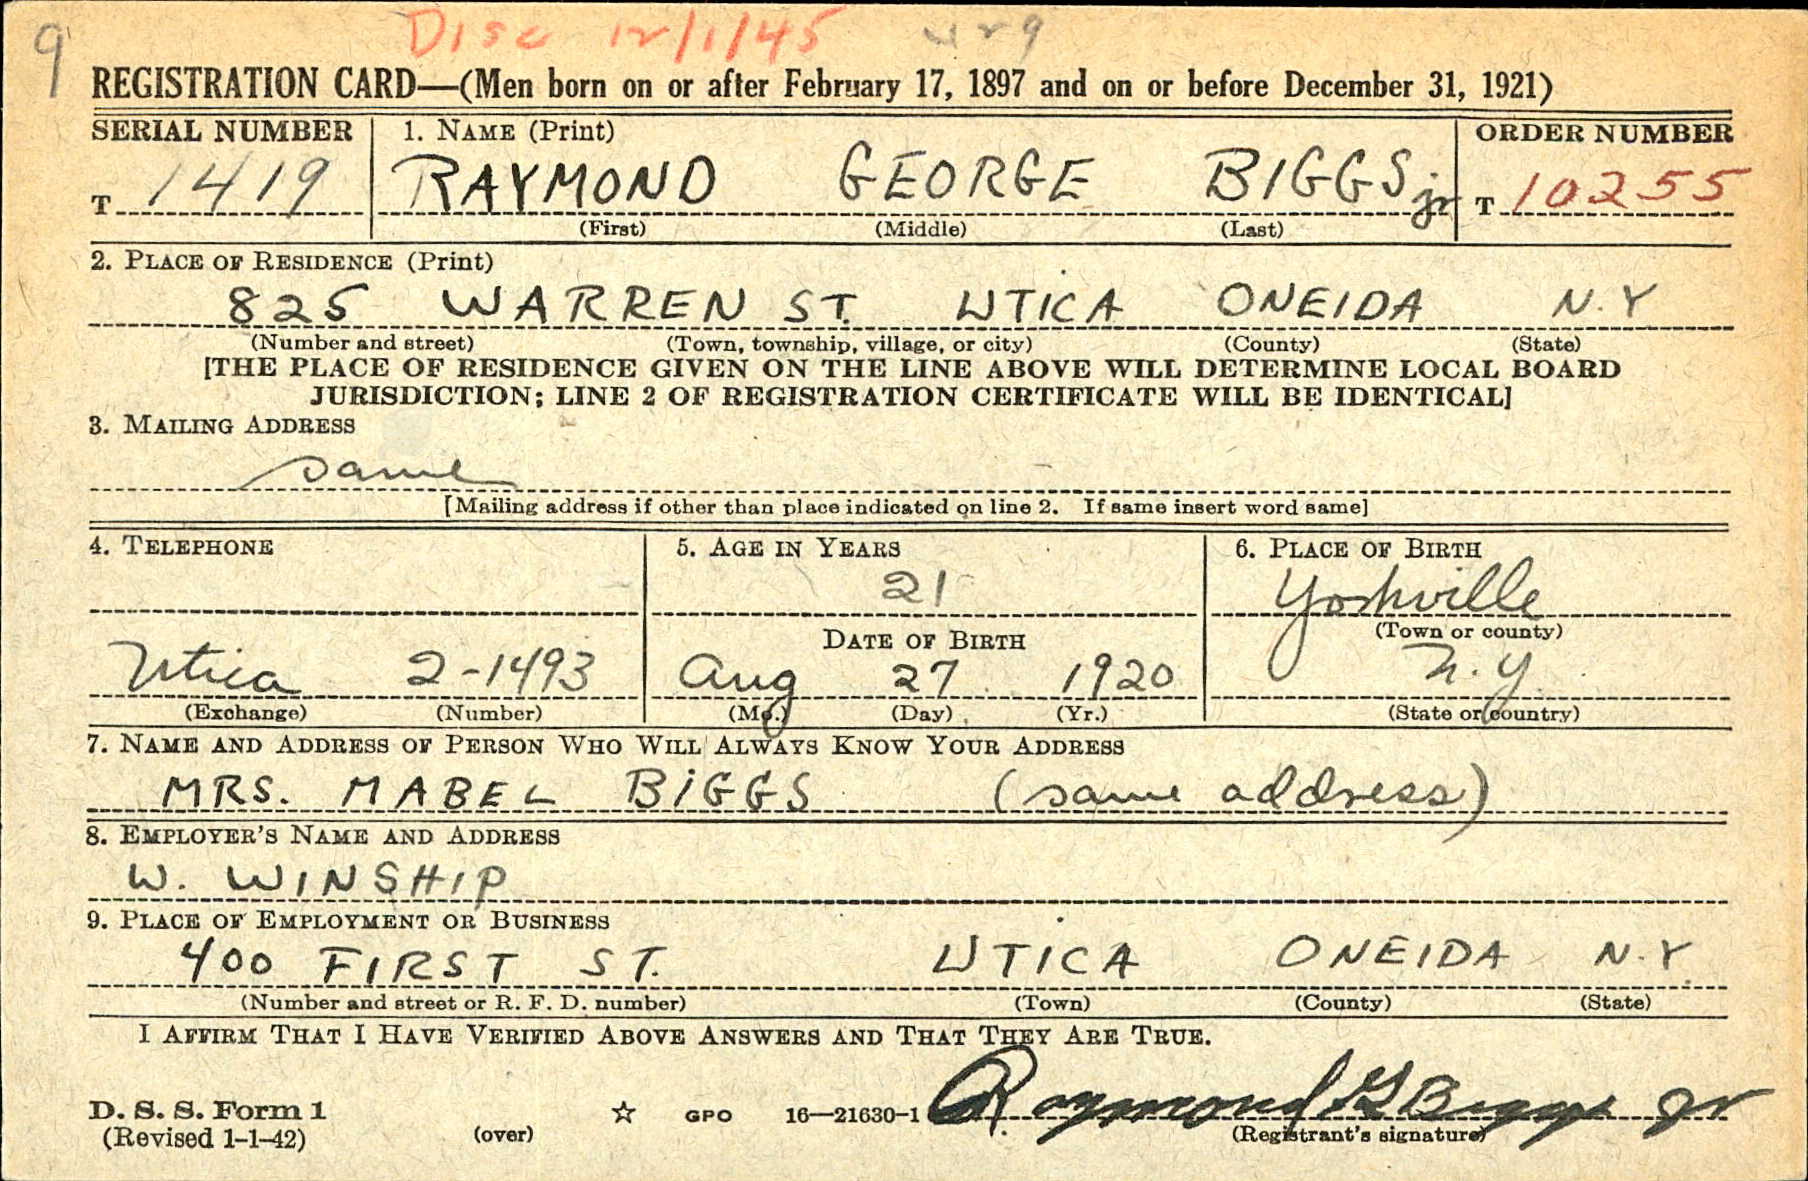 9 Disc 12/1/45 429
REGISTRATION CARD—(Men born on or after February 17, 1897 and on or before December 31, 1921)
SERIAL NUMBER 1. NAME (Print) ORDER NUMBER
T 1419 RAYMOND GEORGE BIGGS jr T 10255
(First) (Middle) (Last)
2. PLACE OF RESIDENCE (Print)
825 WARREN ST. UTICA ONEIDA N.Y
(Number and street) (Town, township, village, or city) (County) (State)
[THE PLACE OF RESIDENCE GIVEN ON THE LINE ABOVE WILL DETERMINE LOCAL BOARD
JURISDICTION; LINE 2 OF REGISTRATION CERTIFICATE WILL BE IDENTICAL]
3. MAILING ADDRESS
same
[Mailing address if other than place indicated on line 2. If same insert word same]
4. TELEPHONE 5. AGE IN YEARS 6. PLACE OF BIRTH
21 Yorkville
DATE OF BIRTH (Town or county)
Utica 2-1493 Aug 27 1920 N.Y.
(Exchange) (Number) (Mo.) (Day) (Yr.) (State or country)
7. NAME AND ADDRESS OF PERSON WHO WILL ALWAYS KNOW YOUR ADDRESS
MRS. MABEL BIGGS (same address)
8. EMPLOYER'S NAME AND ADDRESS
W. WINSHIP
9. PLACE OF EMPLOYMENT OR BUSINESS
400 FIRST ST. UTICA ONEIDA N.Y.
(Number and street or R. F. D. number) (Town) (County) (State)
I AFFIRM THAT I HAVE VERIFIED ABOVE ANSWERS AND THAT THEY ARE TRUE.
D. S. S. Form 1 ☆ GPO 16—21630-1 Raymond G Biggs Jr
(Revised 1-1-42) (over) (Registrant's signature)